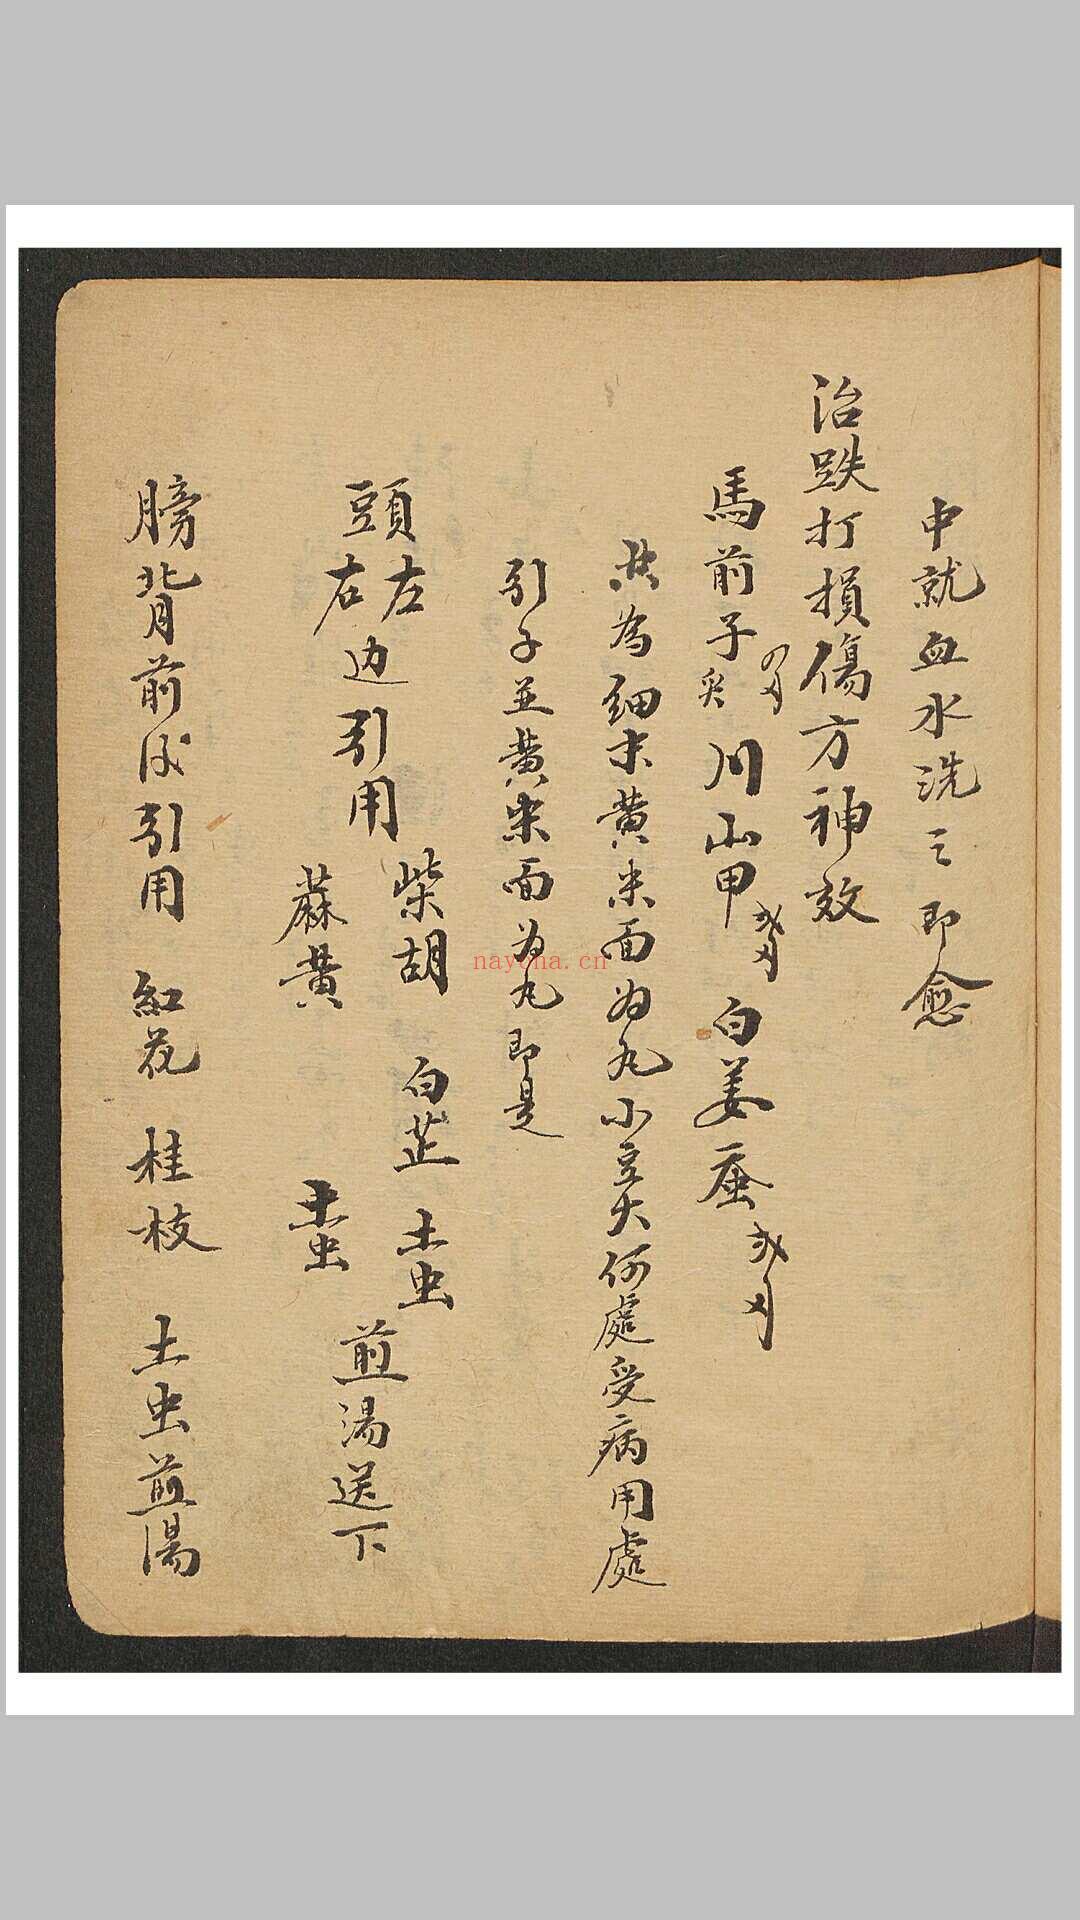 中就血水洗之即愈
治跌打損傷方神效
馬前子炙 川山甲 白姜蚕
共為细末黄米面为丸小豆大何處受病用處
引子並黄米面为丸即是
頭左右边引用 柴胡 白芷 土虫 蔴黄 土虫 煎湯送下
膀背前后引用 紅花 桂枝 土虫煎湯
nayona.cn